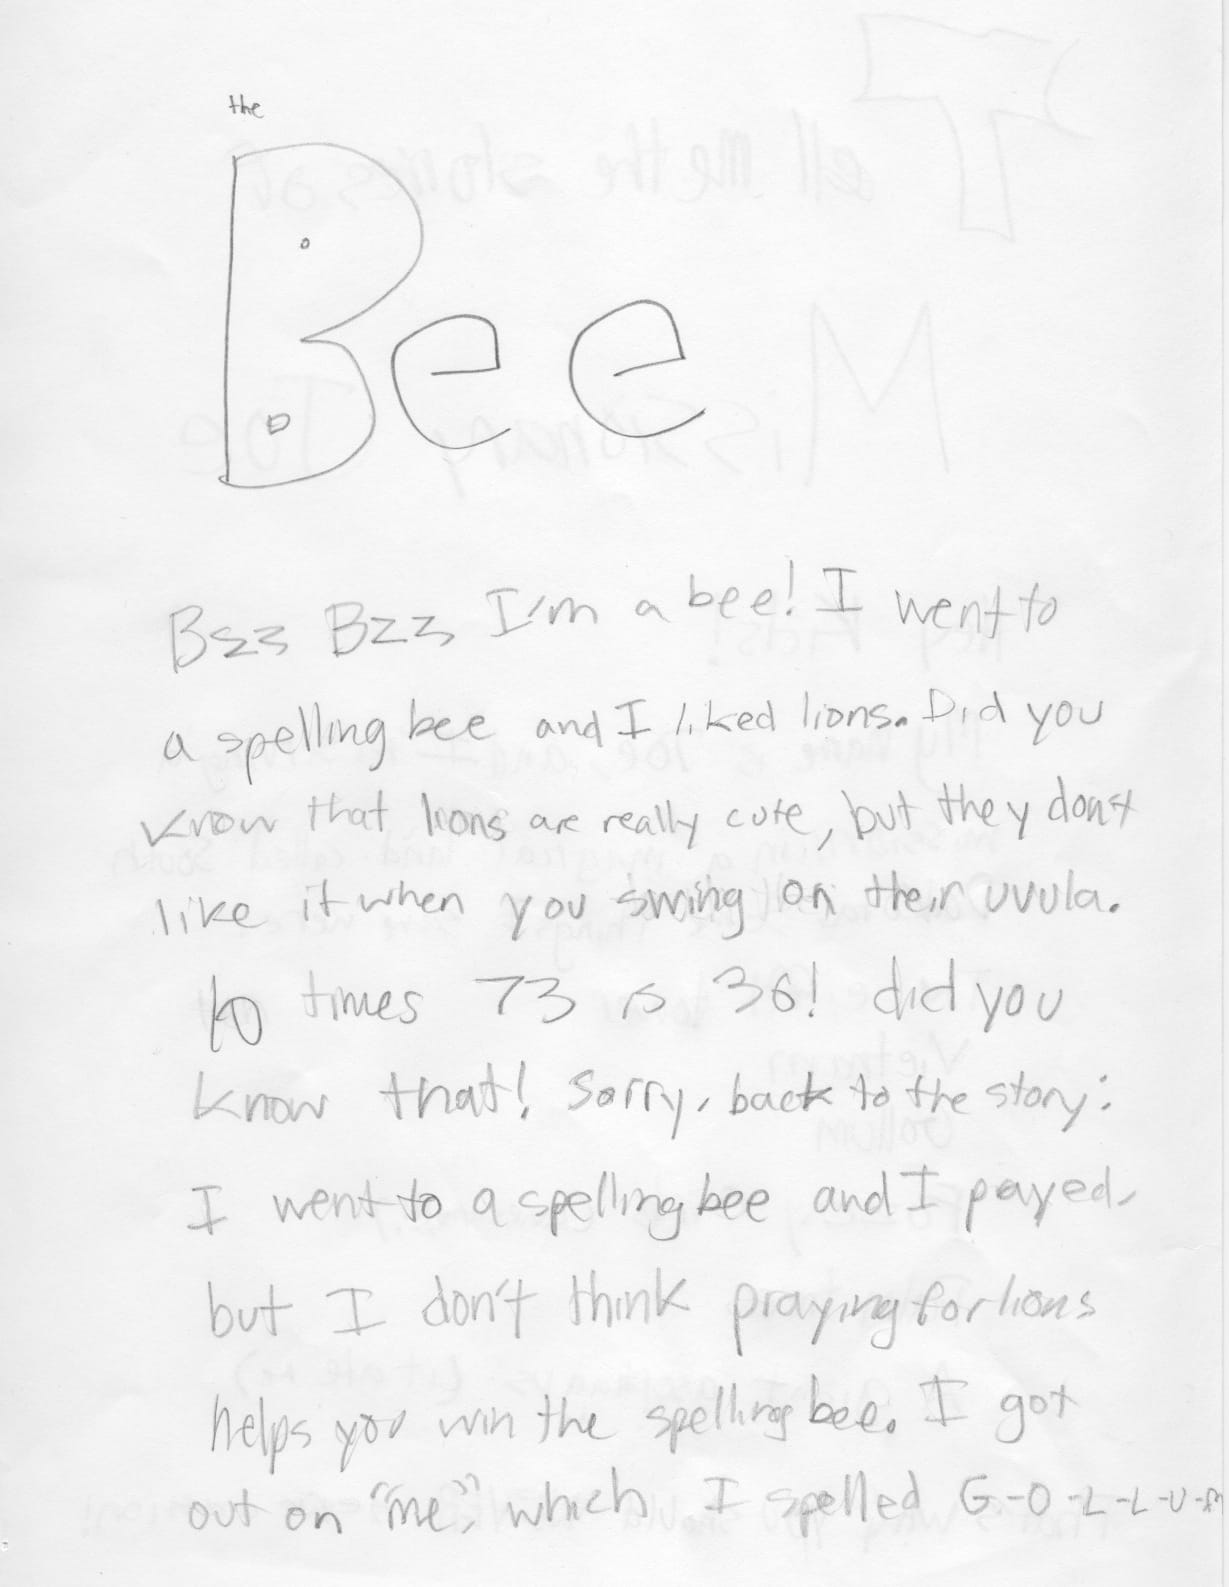 the
Bee
Bzz Bzz I'm a bee! I went to
a spelling bee and I liked lions. Did you
know that lions are really cute, but they don't
like it when you swing on their uvula.
10 times 73 is 36! did you
know that! Sorry, back to the story:
I went to a spelling bee and I payed,
but I don't think praying for lions
helps you win the spelling bee. I got
out on "me", which I spelled G-O-L-L-U-M